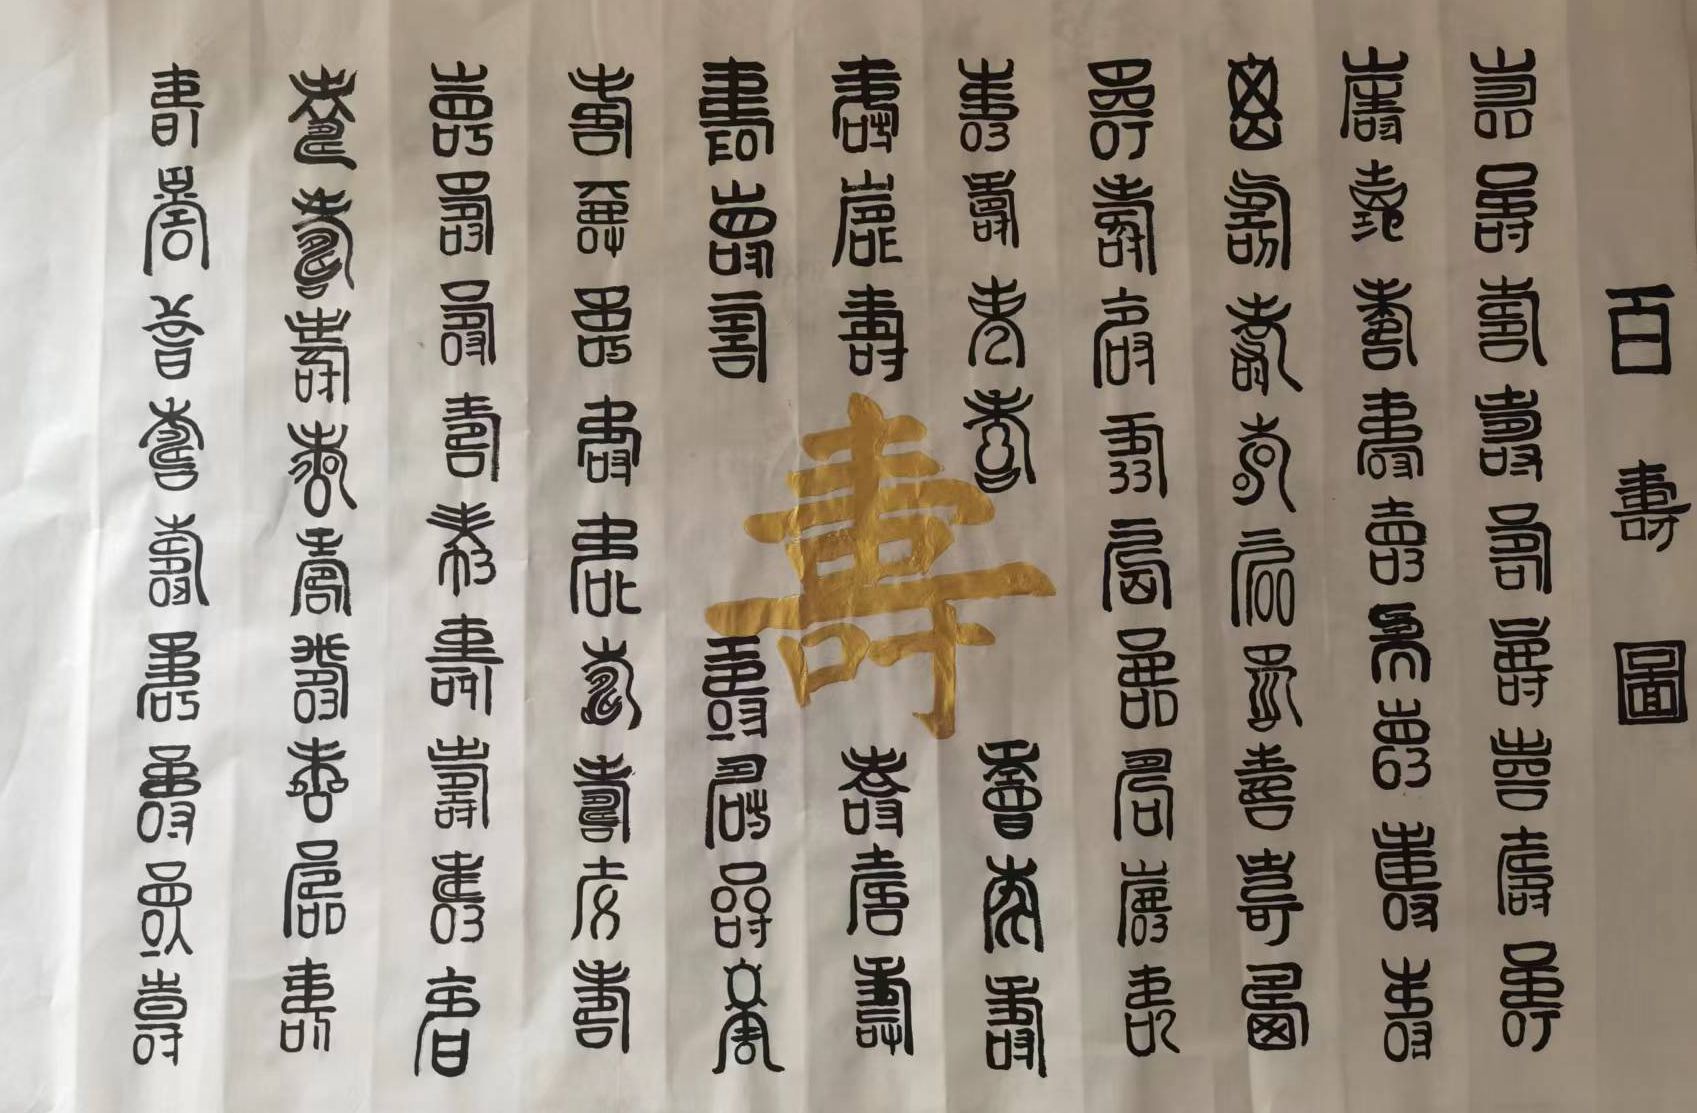 百壽圖
壽壽壽壽壽壽壽壽壽
壽壽壽壽壽壽壽壽壽
壽壽壽壽壽壽壽壽壽
壽壽壽壽壽壽壽壽壽
壽壽壽壽壽壽壽
壽壽壽壽壽壽壽
壽壽壽壽壽壽壽
壽壽壽壽壽壽壽壽壽
壽壽壽壽壽壽壽壽壽
壽壽壽壽壽壽壽壽壽
壽壽壽壽壽壽壽壽壽